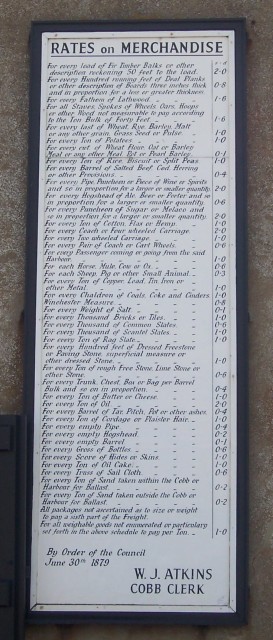 RATES on MERCHANDISE
For every load of Fir Timber Balks or other
description reckoning 50 feet to the load. 2-0
For every Hundred running feet of Deal Planks
or other description of Boards three inches thick 0-8
and in proportion for a less or greater thickness.
For every Fathom of Lathwood. 1-6
For all Staves, Spokes of Wheels, Oars, Hoops
or other Wood not measurable to pay according
to the Ton Bulk of Forty Feet 1-6
For every last of Wheat, Rye, Barley, Malt
or any other grain, Grass Seed or Pulse 1-0
For every Ton of Potatoes 1-0
For every cwt. of Wheat Flour, Oat or Barley
Meal or any other Meal, Pot or Pearl Barley. 0-1
For every Ton of Rice, Biscuit or Split Peas 1-0
For every Barrel of Salted Beef, Cod, Herring
or other Provisions 0-4
For every Pipe, Puncheon or Piece of Wine or Spirits
and so in proportion for a larger or smaller quantity 2-0
For every Hogshead of Ale, Beer or Porter and
in proportion for a larger or smaller quantity 0-6
For every Puncheon of Sugar or Molasses and
so in proportion for a larger or smaller quantity 2-0
For every Ton of Cotton, Flax or Hemp 1-0
For every Coach or Four wheeled Carriage 2-0
For every Two wheeled Carriage 1-0
For every Pair of Coach or Cart Wheels. 0-6
For every Passenger coming or going from the said
Harbour 1-0
For each Horse, Mule, Cow or Ox 0-6
For each Sheep, Pig or other Small Animal 0-3
For every Ton of Copper, Lead, Tin, Iron or
other Metal 1-0
For every Chaldron of Coals, Coke and Cinders 1-0
Winchester Measure 0-8
For every Weight of Salt 0-1
For every Thousand Bricks or Tiles. 1-0
For every Thousand of Common Slates. 0-6
For every Thousand of Scantel Slates 1-0
For every Ton of Rag Slate 1-0
For every Hundred feet of Dressed Freestone
or Paving Stone, superficial measure or
other dressed Stone 1-0
For every Ton of rough Free Stone, Lime Stone or
other Stone. 0-6
For every Trunk, Chest, Box or Bag per Barrel
Bulk and so on in proportion 0-4
For every Ton of Butter or Cheese. 1-0
For every Ton of Oil 2-0
For every Barrel of Tar, Pitch, Pot or other ashes. 0-4
For every Ton of Cordage or Plaister Hair 1-0
For every empty Pipe 0-4
For every empty Hogshead 0-2
For every empty Barrel 0-1
For every Gross of Bottles 0-6
For every Score of Hides or Skins 1-0
For every Ton of Oil Cake 1-0
For every Truss of Sail Cloth. 0-6
For every Ton of Sand taken within the Cobb or
Harbour for Ballast 0-2
For every Ton of Sand taken outside the Cobb or
Harbour for Ballast 0-2
All packages not ascertained as to size or weight
to pay a sixth part of the Freight
For all weighable goods not enumerated or particularly
set forth in the above schedule to pay per Ton. 1-0
By Order of the Council
June 30th 1879
W. J. ATKINS
COBB CLERK